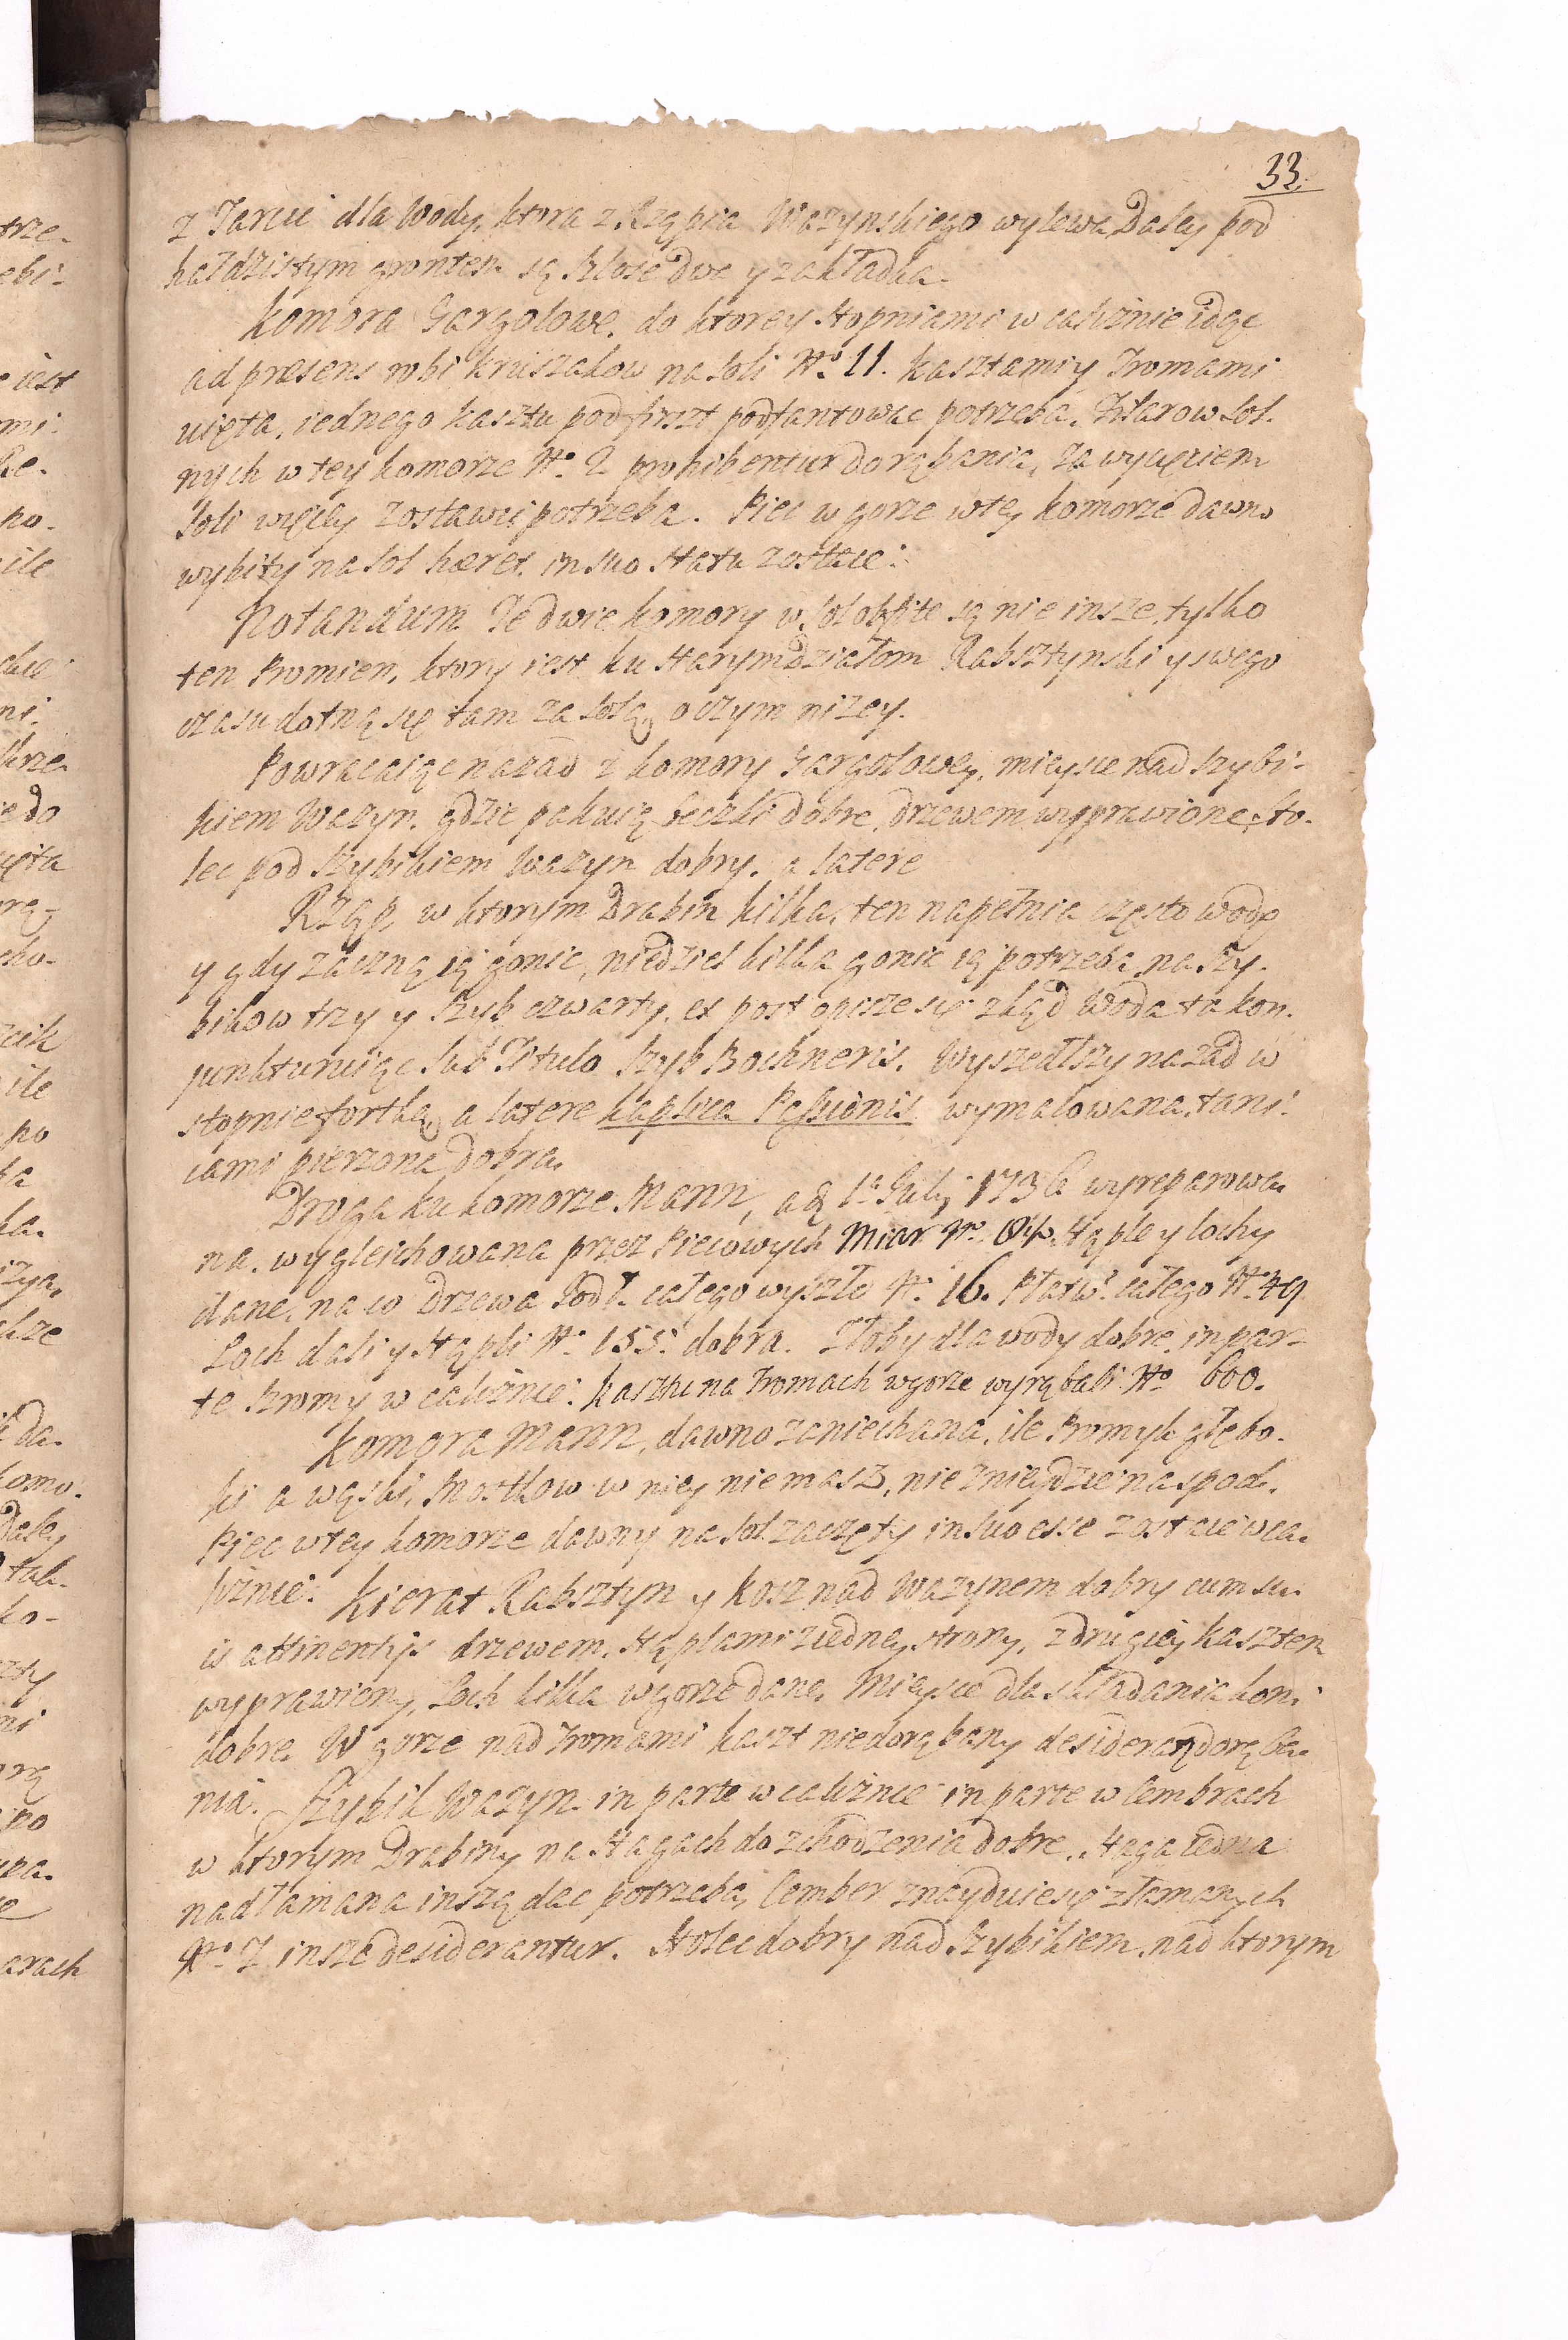 33.
z Tarcic dla Wody, ktora z Rząpia Wazynskiego wylewa Daley pod
hałdzistym gruntem są Szloie dwa y zakładka.
Komora Gargolowe. do ktorey stopniami w caliznie idąc
ad præsens robi kruszakow na soli No. 11. kasztami y Stromami
uięta, iednego kasztu pod firszt podfantowac potrzeba. Filarow Sol-
nych w tey komorze No. 2 prohibentur do rąbania, za wycięciem
Soli więcey zostawic potrzeba. Piec w gorze w tey komorze dawno
wybity na sol hæret. in suo statu zostaie.
Notandum Te dwie komory w sol obfite są nie insze, tylko
ten Promien, ktory iest ku starym działom Rabsztynski y swego
czasu dotną się tam za solą, o czym nizey.
Powracaiąc nazad z komory Gargolowey, mieysce nad szybi-
kiem Wazyn. gdzie pakuią beczki dobre, drzewem wyprawione, sto-
lec pod Szybikiem Wazyn dobry. a latere
Rząp, w ktorym Drabin kilka, ten napełnia często wodą
y gdy zaczną ią gonic, niedziel kilka gonic ią potrzeba na Szy-
bikow trzy y Szyb czwarty, et post opisze się zkąd Woda ta kon-
junkturuiąc sub Titulo Szyb Bochneris. Wyszedłszy nazad w
stopnie fortka, a latere kaplica Passionis wymalowana, tani-
cami pierzona dobra.
Droga ku komorze Mann, a d. 1a July 1736 wyreparowa-
na. wygleichowana przez Piecowych Miar No. stąple y lochy
dane, na co Drzewa Podł. całego wyszło No. 16. Płatw. całego No. 49
Loch dali y stąpli No. 155. dobra. Złoby dla wody dobre, in par-
te stromy w caliznie. Kasztu na Stromach w gorze wyrąbali No. 600.
Komora Mann, dawno zaniechana, ile Promyk głębo-
ki a wąski, Mostkow w niey nie masz, nie znieydzie na spod.
Piec w tey komorze dawny na sol zaczęty in suo esse zostaie w ca-
liznie. Kierat Rabsztyn y kosz nad Wazynem dobry cum su-
is attinentijs drzewem, stąplami z iedney strony, z drugiey kasztem
wyprawiony, Loch kilka w gorze dane. Mieysce dla składania koni
dobre. W gorze nad Stromami kaszt niedorąbany desiderat dorąba-
nia. Szybik Wazyn in parte w caliznie in parte w Cembrach
w ktorym Drabiny na stagach do zchodzenia dobre. staga iedna
nadłamana inszą dac potrzeba, Cember znayduie się złamanych
No. 7 insze desiderantur. Stolec dobry nad Szybikiem, nad ktorym